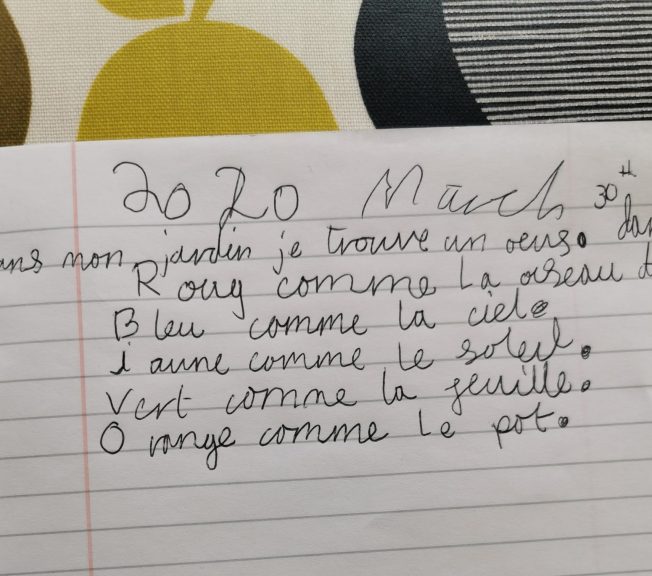 2020 March 30th
ans mon jardin je trouve un oeuso dan
Rouy comme La oiseau d
Bleu comme la ciel.
jaune comme Le soleil.
Vert comme la feuille.
Orange comme Le pot.